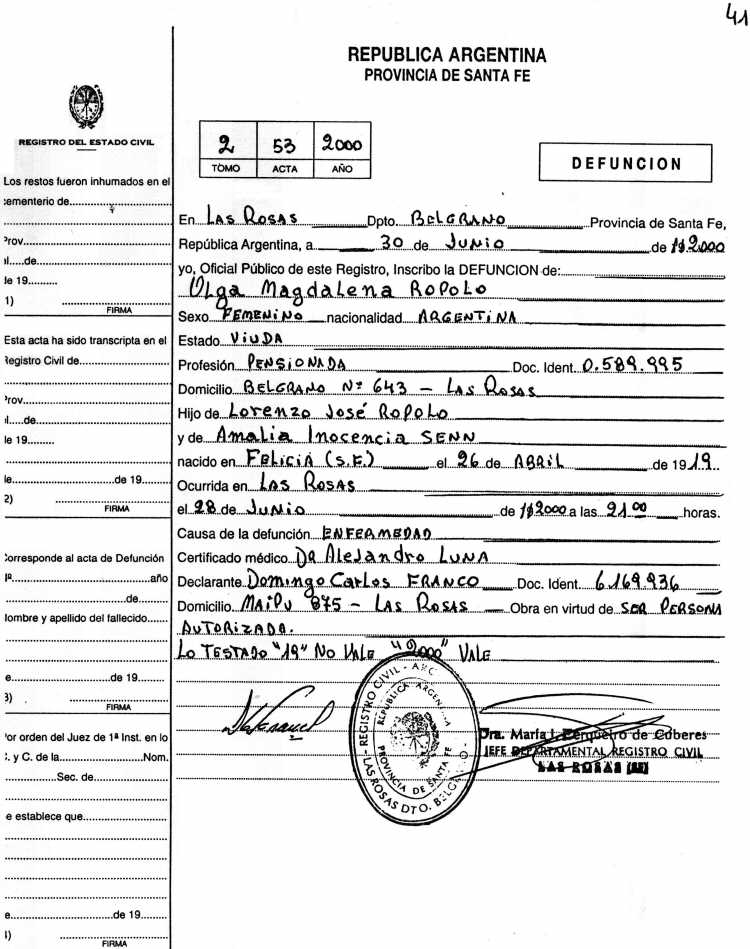 41
REPUBLICA ARGENTINA
PROVINCIA DE SANTA FE
REGISTRO DEL ESTADO CIVIL
2 53 2000
TOMO ACTA AÑO
DEFUNCION
Los restos fueron inhumados en el
cementerio de
Prov.
de
de 19
1)
FIRMA
Esta acta ha sido transcripta en el
Registro Civil de
Prov.
de
de 19
de 19
2)
FIRMA
Corresponde al acta de Defunción
Nº año
de
Nombre y apellido del fallecido
de 19
3)
FIRMA
Por orden del Juez de 1ª Inst. en lo
C. y C. de la Nom.
Sec. de
se establece que
de 19
FIRMA
En LAS ROSAS Dpto. BELGRANO Provincia de Santa Fe,
República Argentina, a 30 de JUNIO de 19 2000
yo, Oficial Público de este Registro, Inscribo la DEFUNCION de:
Olga Magdalena ROPOLO
Sexo FEMENINO nacionalidad ARGENTINA
Estado VIUDA
Profesión PENSIONADA Doc. Ident. 0.589.995
Domicilio BELGRANO Nº 643 - LAS ROSAS
Hijo de Lorenzo José ROPOLO
y de Amalia Inocencia SENN
nacido en FELICIA (S.F.) el 26 de ABRIL de 1919
Ocurrida en LAS ROSAS
el 28 de JUNIO de 19 2000 a las 21.00 horas.
Causa de la defunción ENFERMEDAD
Certificado médico DR Alejandro LUNA
Declarante Domingo Carlos FRANCO Doc. Ident. 6.169.936
Domicilio MAIPU 875 - LAS ROSAS Obra en virtud de SER PERSONA
AUTORIZADA.
LO TESTADO "19" NO VALE "2000" VALE
REGISTRO CIVIL - LAS ROSAS DTO. BELGRANO
REPUBLICA ARGENTINA PROVINCIA DE SANTA FE
Dra. María I. Cerqueiro de Coberes
JEFE DEPARTAMENTAL REGISTRO CIVIL
LAS ROSAS (SF)